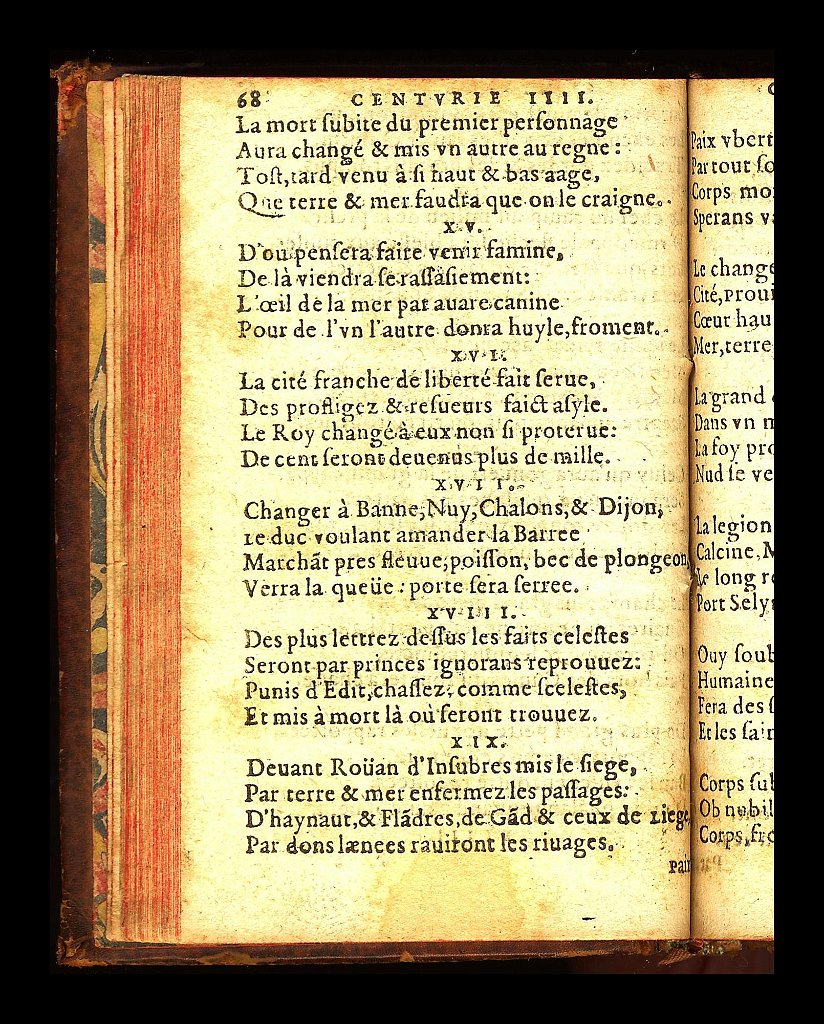 68 CENTVRIE IIII.
La mort ſubite du premier perſonnage
Aura changé & mis vn autre au regne:
Toſt, tard venu à ſi haut & bas aage,
Que terre & mer faudra que on le craigne.
XV.
D'ou penſera faire venir famine,
De là viendra ſe raſſaſiement:
L'œil de la mer par auare canine
Pour de l'vn l'autre donra huyle, froment.
XVI.
La cité franche de liberté fait ſerue,
Des profligez & reſueurs faict aſyle.
Le Roy changé à eux non ſi proterue:
De cent ſeront deuenus plus de mille.
XVII.
Changer à Banne, Nuy, Chalons, & Dijon,
Le duc voulant amander la Barree
Marchãt pres fleuue, poiſſon, bec de plongeon,
Verra la queüe: porte ſera ſerree.
XVIII.
Des plus lettrez deſſus les faits celeſtes
Seront par princes ignorans reprouuez:
Punis d'Edit, chaſſez, comme ſceleſtes,
Et mis à mort là où ſeront trouuez.
XIX.
Deuant Roüan d'Inſubres mis le ſiege,
Par terre & mer enfermez les paſſages:
D'haynaut, & Flãdres, de Gãd & ceux de Liege,
Par dons lænees rauiront les riuages.
Paix
Paix vbert
Par tout ſo
Corps mo
Sperans va
Le change
Cité, proui
Cœur hau
Mer, terre
La grand
Dans vn m
La foy pro
Nud ſe ve
La legion
Calcine, M
Le long r
Port Sely
Ouy ſoub
Humaine
Fera des ſ
Et les ſain
Corps ſub
Ob nubil
Corps, fro